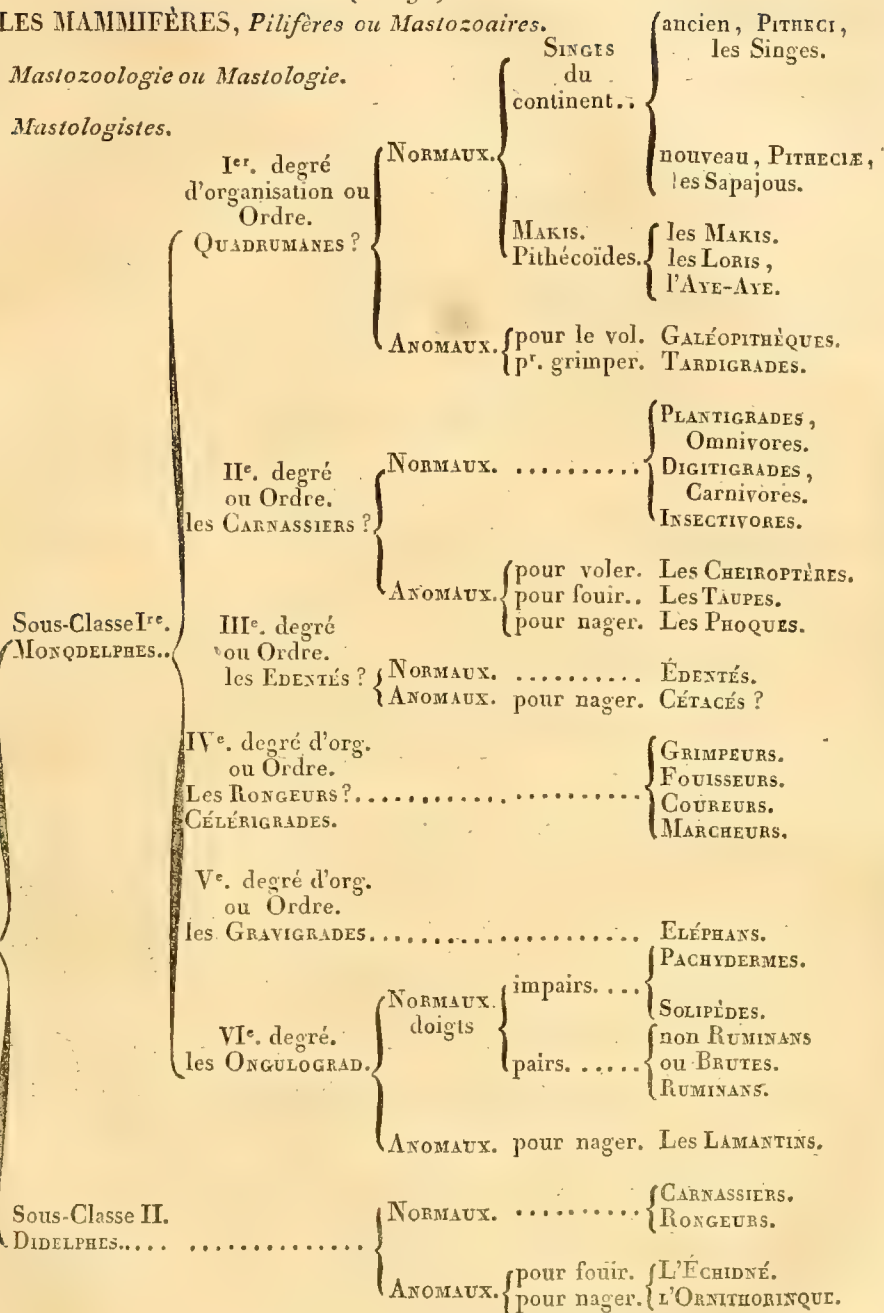 LES MAMMIFÈRES, Pilifères ou Mastozoaires.
Mastozoologie ou Mastologie.
Mastologistes.
Sous-Classe Ire.
MONODELPHES..
Ier. degré
d'organisation ou
Ordre.
QUADRUMANES ?
NORMAUX.
SINGES
du
continent..
ancien, PITHECI,
les Singes.
nouveau, PITHECIÆ,
les Sapajous.
MAKIS.
Pithécoïdes.
les MAKIS.
les LORIS,
l'AYE-AYE.
ANOMAUX.
pour le vol. GALÉOPITHÈQUES.
pr. grimper. TARDIGRADES.
IIe. degré
ou Ordre.
les CARNASSIERS ?
NORMAUX. ..........
PLANTIGRADES,
Omnivores.
DIGITIGRADES,
Carnivores.
INSECTIVORES.
ANOMAUX.
pour voler. Les CHEIROPTÈRES.
pour fouir.. Les TAUPES.
pour nager. Les PHOQUES.
IIIe. degré
ou Ordre.
les EDENTÉS ?
NORMAUX. .......... ÉDENTÉS.
ANOMAUX. pour nager. CÉTACÉS ?
IVe. degré d'org.
ou Ordre.
Les RONGEURS ?......................
CÉLÉRIGRADES.
GRIMPEURS.
FOUISSEURS.
COUREURS.
MARCHEURS.
Ve. degré d'org.
ou Ordre.
les GRAVIGRADES...................... ELÉPHANS.
VIe. degré.
les ONGULOGRAD.
NORMAUX.
doigts
impairs. ....
PACHYDERMES.
SOLIPÈDES.
pairs. ......
non RUMINANS
ou BRUTES.
RUMINANS.
ANOMAUX. pour nager. Les LAMANTINS.
Sous-Classe II.
DIDELPHES..... ..............
NORMAUX. ..........
CARNASSIERS.
RONGEURS.
ANOMAUX.
pour fouir. L'ÉCHIDNÉ.
pour nager. L'ORNITHORINQUE.